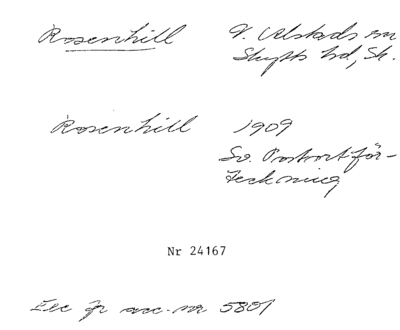 Rosenhill V. Alstads sn
Skytts hd, Sk.
Rosenhill 1909
Sv. Postortför-
teckning
Nr 24167
Exc fr acc. nr 5801